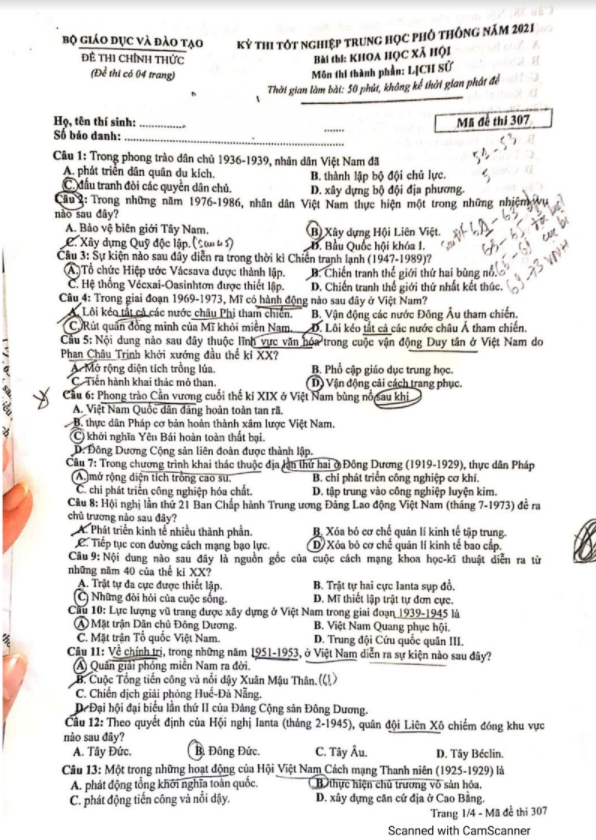 BỘ GIÁO DỤC VÀ ĐÀO TẠO
ĐỀ THI CHÍNH THỨC
(Đề thi có 04 trang)
KỲ THI TỐT NGHIỆP TRUNG HỌC PHỔ THÔNG NĂM 2021
Bài thi: KHOA HỌC XÃ HỘI
Môn thi thành phần: LỊCH SỬ
Thời gian làm bài: 50 phút, không kể thời gian phát đề
Họ, tên thí sinh: ..............
Số báo danh: ..............
Mã đề thi 307
51-53
Câu 1: Trong phong trào dân chủ 1936-1939, nhân dân Việt Nam đã
A. phát triển dân quân du kích. B. thành lập bộ đội chủ lực.
C. đấu tranh đòi các quyền dân chủ. D. xây dựng bộ đội địa phương.
Câu 2: Trong những năm 1976-1986, nhân dân Việt Nam thực hiện một trong những nhiệm vụ
nào sau đây?
A. Bảo vệ biên giới Tây Nam. B. Xây dựng Hội Liên Việt.
C. Xây dựng Quỹ độc lập. (sau 45) D. Bầu Quốc hội khóa I.
Câu 3: Sự kiện nào sau đây diễn ra trong thời kì Chiến tranh lạnh (1947-1989)?
A. Tổ chức Hiệp ước Vácsava được thành lập. B. Chiến tranh thế giới thứ hai bùng nổ.
C. Hệ thống Vécxai-Oasinhtơn được thiết lập. D. Chiến tranh thế giới thứ nhất kết thúc.
Câu 4: Trong giai đoạn 1969-1973, Mĩ có hành động nào sau đây ở Việt Nam?
A. Lôi kéo tất cả các nước châu Phi tham chiến. B. Vận động các nước Đông Âu tham chiến.
C. Rút quân đồng minh của Mĩ khỏi miền Nam. D. Lôi kéo tất cả các nước châu Á tham chiến.
Câu 5: Nội dung nào sau đây thuộc lĩnh vực văn hóa trong cuộc vận động Duy tân ở Việt Nam do
Phan Châu Trinh khởi xướng đầu thế kỉ XX?
A. Mở rộng diện tích trồng lúa. B. Phổ cập giáo dục trung học.
C. Tiến hành khai thác mỏ than. D. Vận động cải cách trang phục.
Câu 6: Phong trào Cần vương cuối thế kỉ XIX ở Việt Nam bùng nổ sau khi
A. Việt Nam Quốc dân đảng hoàn toàn tan rã.
B. thực dân Pháp cơ bản hoàn thành xâm lược Việt Nam.
C. khởi nghĩa Yên Bái hoàn toàn thất bại.
D. Đông Dương Cộng sản liên đoàn được thành lập.
Câu 7: Trong chương trình khai thác thuộc địa lần thứ hai ở Đông Dương (1919-1929), thực dân Pháp
A. mở rộng diện tích trồng cao su. B. chỉ phát triển công nghiệp cơ khí.
C. chỉ phát triển công nghiệp hóa chất. D. tập trung vào công nghiệp luyện kim.
Câu 8: Hội nghị lần thứ 21 Ban Chấp hành Trung ương Đảng Lao động Việt Nam (tháng 7-1973) đề ra
chủ trương nào sau đây?
A. Phát triển kinh tế nhiều thành phần. B. Xóa bỏ cơ chế quản lí kinh tế tập trung.
C. Tiếp tục con đường cách mạng bạo lực. D. Xóa bỏ cơ chế quản lí kinh tế bao cấp.
Câu 9: Nội dung nào sau đây là nguồn gốc của cuộc cách mạng khoa học-kĩ thuật diễn ra từ
những năm 40 của thế kỉ XX?
A. Trật tự đa cực được thiết lập. B. Trật tự hai cực Ianta sụp đổ.
C. Những đòi hỏi của cuộc sống. D. Mĩ thiết lập trật tự đơn cực.
Câu 10: Lực lượng vũ trang được xây dựng ở Việt Nam trong giai đoạn 1939-1945 là
A. Mặt trận Dân chủ Đông Dương. B. Việt Nam Quang phục hội.
C. Mặt trận Tổ quốc Việt Nam. D. Trung đội Cứu quốc quân III.
Câu 11: Về chính trị, trong những năm 1951-1953, ở Việt Nam diễn ra sự kiện nào sau đây?
A. Quân giải phóng miền Nam ra đời.
B. Cuộc Tổng tiến công và nổi dậy Xuân Mậu Thân.
C. Chiến dịch giải phóng Huế-Đà Nẵng.
D. Đại hội đại biểu lần thứ II của Đảng Cộng sản Đông Dương.
Câu 12: Theo quyết định của Hội nghị Ianta (tháng 2-1945), quân đội Liên Xô chiếm đóng khu vực
nào sau đây?
A. Tây Đức. B. Đông Đức. C. Tây Âu. D. Tây Béclin.
Câu 13: Một trong những hoạt động của Hội Việt Nam Cách mạng Thanh niên (1925-1929) là
A. phát động tổng khởi nghĩa toàn quốc. B. thực hiện chủ trương vô sản hóa.
C. phát động tiến công và nổi dậy. D. xây dựng căn cứ địa ở Cao Bằng.
Trang 1/4 - Mã đề thi 307
Scanned with CamScanner